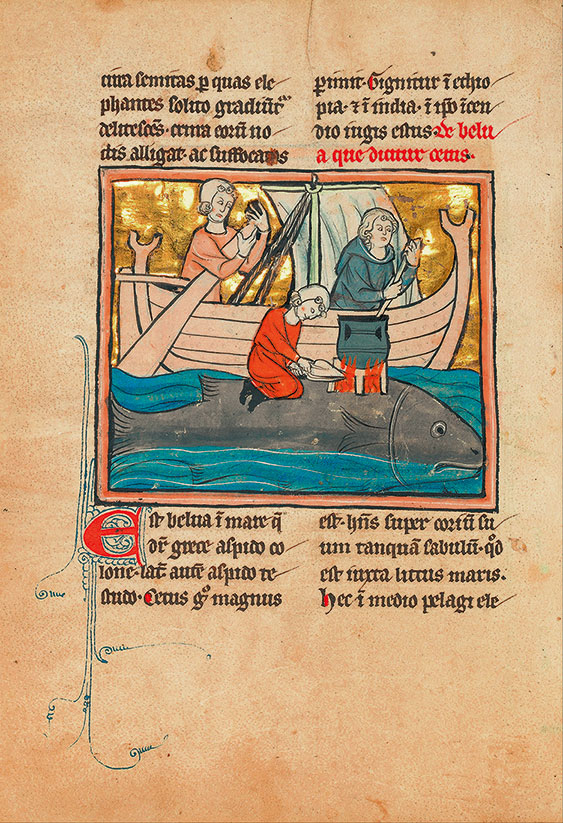 circa semitas ꝑ quas ele
phantes solito gradiūtᷣ
delitescēs. crura eorū no
dis alligat. ac suffocatos
ꝑimit. Gignitur ī ethio
pia. ⁊ ī india. ī ip̄o īcen
dio iugis estus. De belu
a que dicitur cetus.
Est belua ī mare q̄
dr̄ grece aspido co
lone. lat̄. aut̄ aspido te
studo. Cetus gͦ magnus
est. hn̄s super coriū su
um tanquā sabulū. qͦd
est iuxta littus maris.
hec ī medio pelagi ele